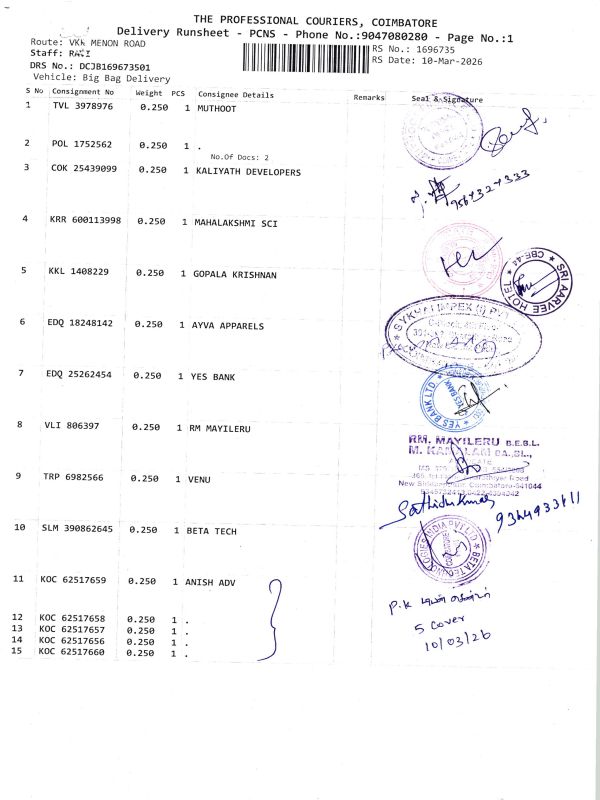 THE PROFESSIONAL COURIERS, COIMBATORE
Delivery Runsheet - PCNS - Phone No.:9047080280 - Page No.:1
Route: VKK MENON ROAD
RS No.: 1696735
Staff: RAVI
RS Date: 10-Mar-2026
DRS No.: DCJB169673501
Vehicle: Big Bag Delivery
S No Consignment No Weight PCS Consignee Details Remarks Seal & Signature
1 TVL 3978976 0.250 1 MUTHOOT
2 POL 1752562 0.250 1 .
No.Of Docs: 2
3 COK 25439099 0.250 1 KALIYATH DEVELOPERS
4 KRR 600113998 0.250 1 MAHALAKSHMI SCI
5 KKL 1408229 0.250 1 GOPALA KRISHNAN
SRI AARVEE HOTELS CBE-44
6 EDQ 18248142 0.250 1 AYVA APPARELS
7 EDQ 25262454 0.250 1 YES BANK
YES BANK LTD.
YES BANK
8 VLI 806397 0.250 1 RM MAYILERU
RM. MAYILERU B.E.B.L.
9 TRP 6982566 0.250 1 VENU
Sathishkumar
10 SLM 390862645 0.250 1 BETA TECH
11 KOC 62517659 0.250 1 ANISH ADV
P.K
5 Cover
10/03/26
12 KOC 62517658 0.250 1 .
13 KOC 62517657 0.250 1 .
14 KOC 62517656 0.250 1 .
15 KOC 62517660 0.250 1 .